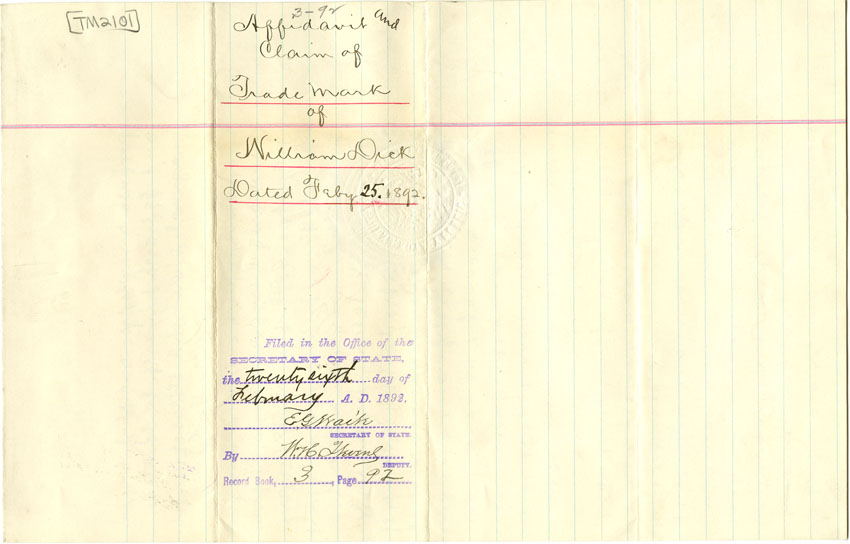 [TM2101]
3-92
Affidavit and
Claim of
Trade Mark
of
William Dick
Dated Feby 25. 1892.
Filed in the Office of the
SECRETARY OF STATE,
the twenty sixth day of
February A. D. 1892.
E G Waite
SECRETARY OF STATE.
By W. H.
DEPUTY.
Record Book, 3, Page 92